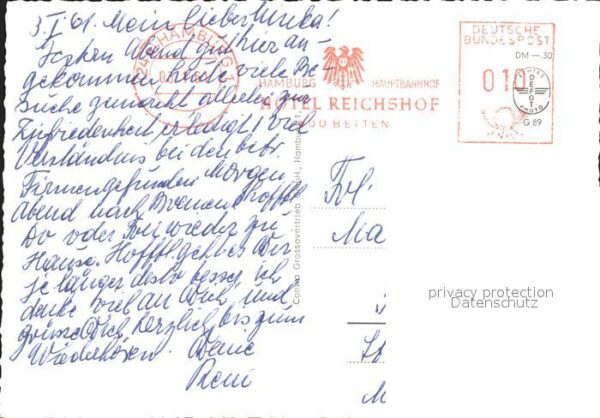 3. I. 61. Mein lieber Mucka!
Gestern Abend gut hier an-
gekommen heute viele Be-
suche gemacht alles zur
Zufriedenheit erledigt viel
Verständnis bei den betr.
Firmen gefunden Morgen
Abend nach Bremen hoffe
Do oder Frei wieder zu
Hause. Hofftl geht es Dir
je länger desto besser ich
denke viel an Dich und
grüsse Dich herzlich bis zum
Wiedersehen. Deine
Reni
24a HAMBURG 1
HAMBURG HAUPTBAHNHOF
HOTEL REICHSHOF
500 BETTEN
DEUTSCHE
BUNDESPOST
010
DM —.30
PHOTO
G 89
Comno Grossovertrieb
Frl.
Ma
privacy protection
Datenschutz